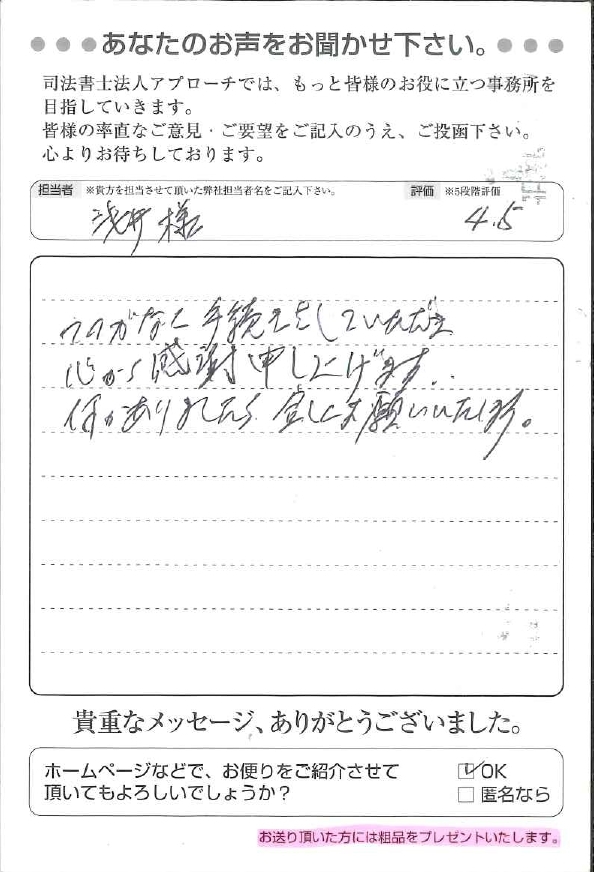 ●●●あなたのお声をお聞かせ下さい。●●●
司法書士法人アプローチでは、もっと皆様のお役に立つ事務所を
目指していきます。
皆様の率直なご意見・ご要望をご記入のうえ、ご投函下さい。
心よりお待ちしております。
担当者 ※貴方を担当させて頂いた弊社担当者名をご記入下さい。 評価 ※5段階評価
浅井 様 4.5
手続きをしていただき
心から感謝申し上げます。
何かありましたら宜しくお願いいたします。
貴重なメッセージ、ありがとうございました。
ホームページなどで、お便りをご紹介させて
頂いてもよろしいでしょうか?
☑OK
□ 匿名なら
お送り頂いた方には粗品をプレゼントいたします。